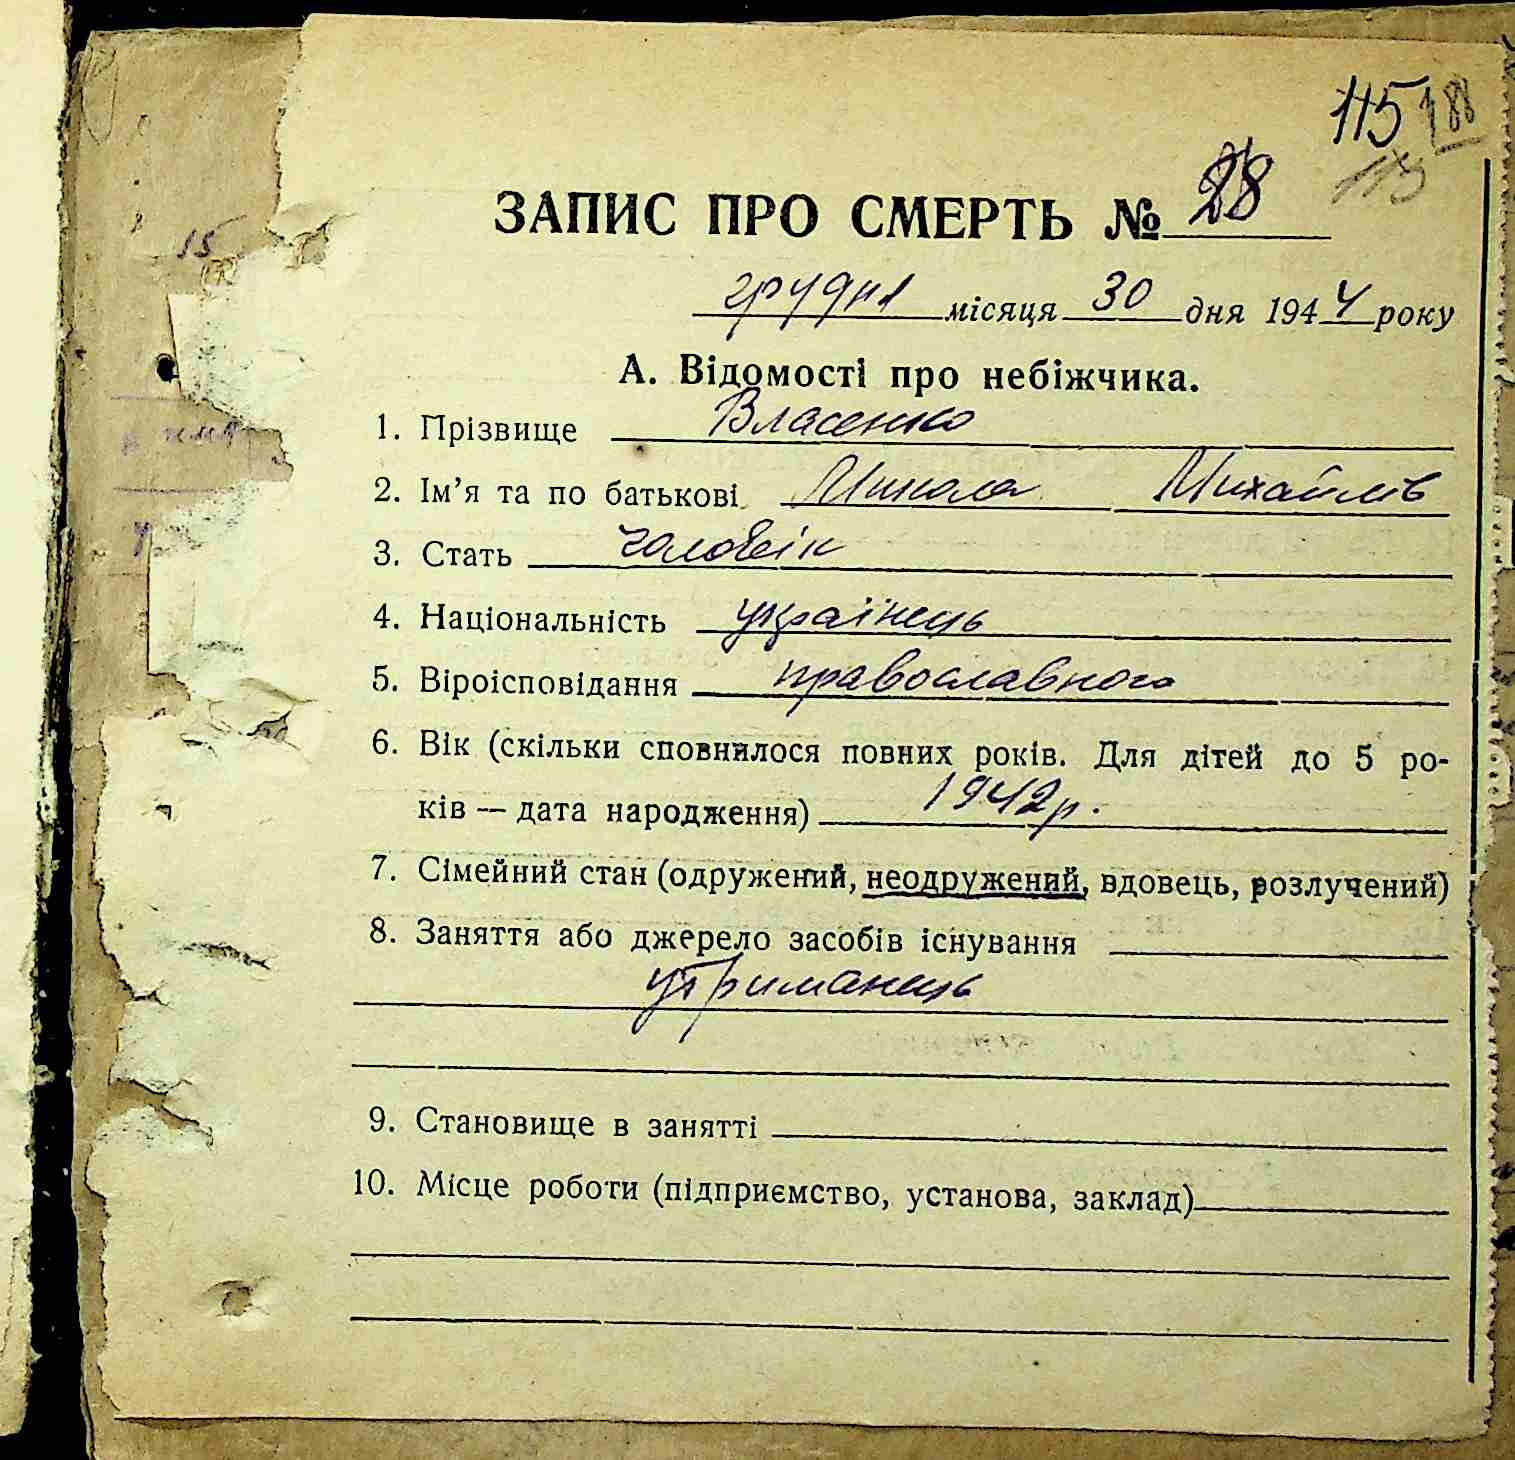 115 188
115
ЗАПИС ПРО СМЕРТЬ № 28
грудня місяця 30 дня 1944 року
А. Відомості про небіжчика.
1. Прізвище Власенко
2. Ім'я та по батькові Микола Михайлів
3. Стать чоловік
4. Національність українець
5. Віроісповідання православного
6. Вік (скільки сповнилося повних років. Для дітей до 5 ро-
ків — дата народження) 1942 р.
7. Сімейний стан (одружений, неодружений, вдовець, розлучений)
8. Заняття або джерело засобів існування
утриманець
9. Становище в занятті
10. Місце роботи (підприємство, установа, заклад)
15